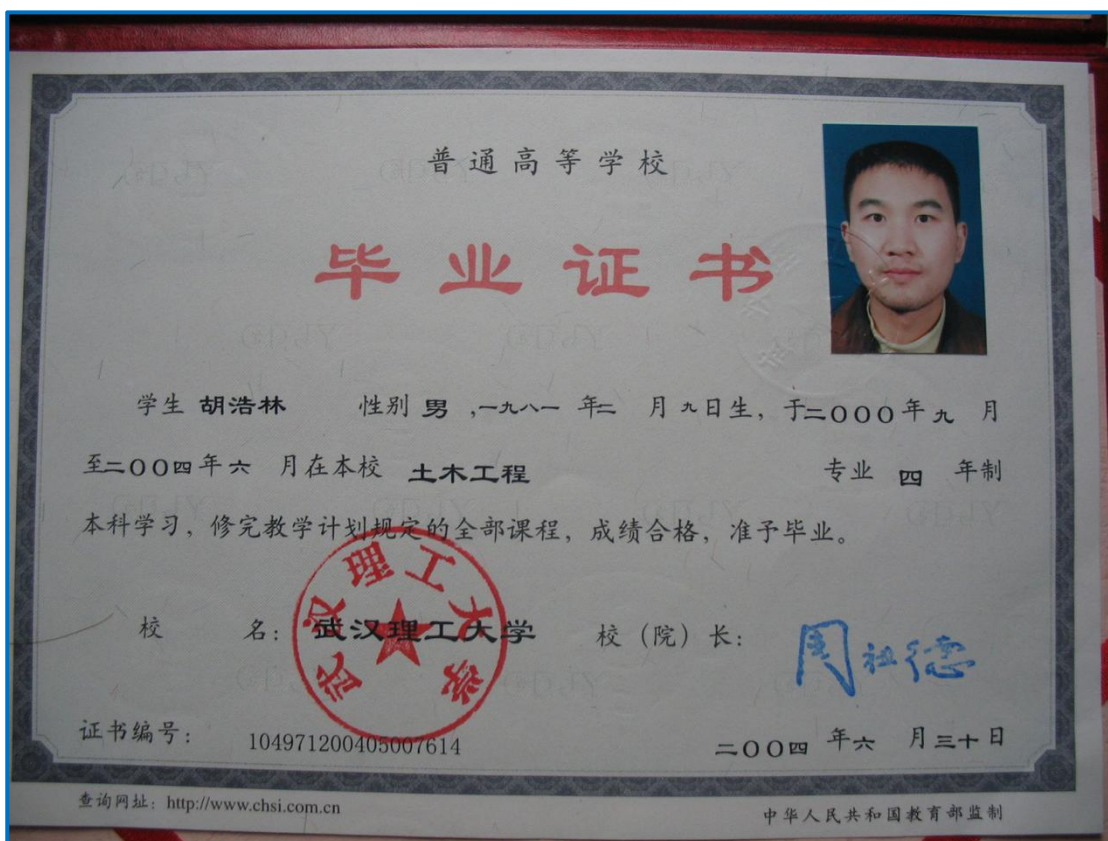 普通高等学校
毕业证书
学生 胡浩林 性别 男 ,一九八一 年二 月九日生，于二OOO年九 月
至二OO四年六 月在本校 土木工程 专业 四 年制
本科学习，修完教学计划规定的全部课程，成绩合格，准予毕业。
校 名：武汉理工大学 校（院）长：周祖德
武汉理工大学
证书编号： 104971200405007614 二OO四 年六 月三十日
查询网址：http://www.chsi.com.cn 中华人民共和国教育部监制